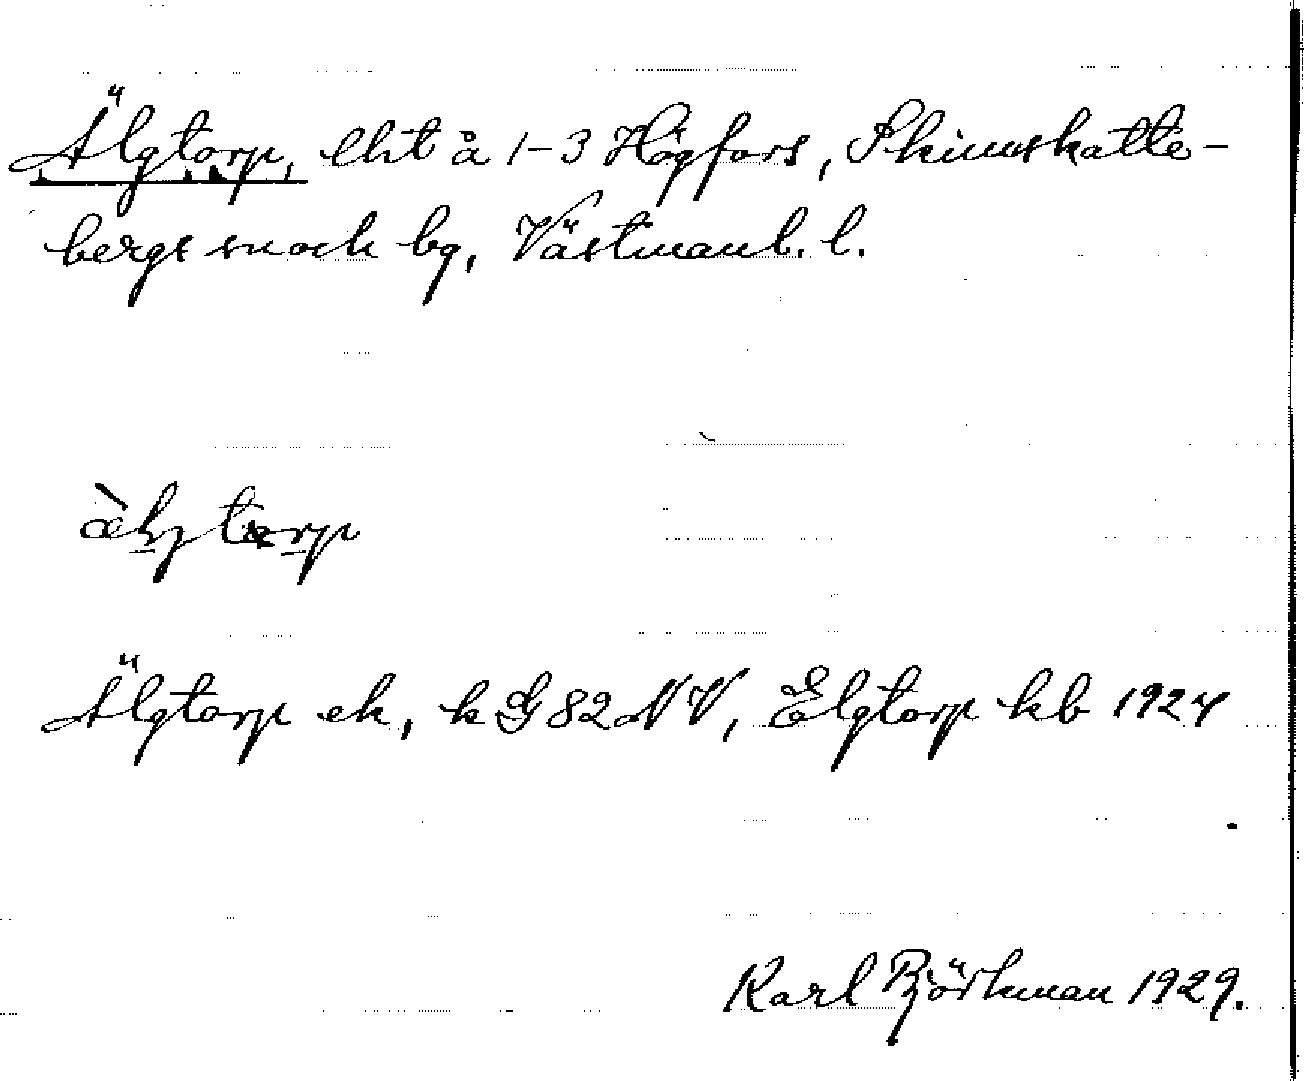 Älgtorp, lht å 1-3 Högfors, Skinnskatte-
bergs sn och bg, Västmanl. l.
àlj tɷrp
Älgtorp ek, k G 82 NV, Elgtorp kb 1924
Karl Björkman 1929.